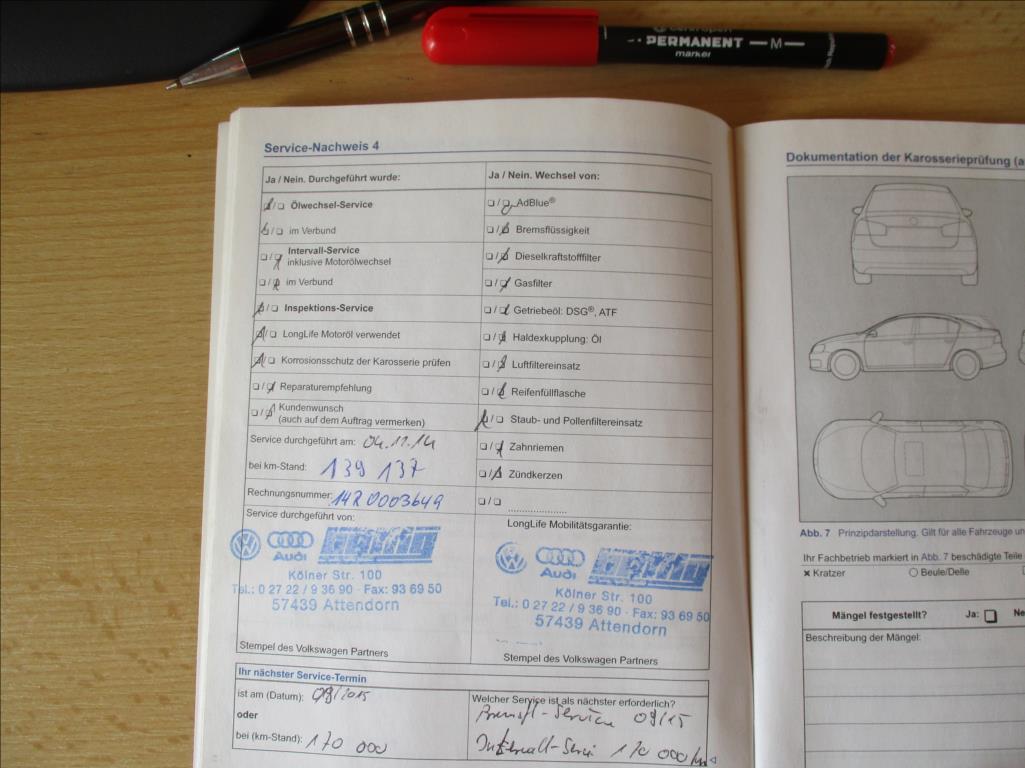 PERMANENT —M—
marker
Service-Nachweis 4
Ja / Nein. Durchgeführt wurde:
Ölwechsel-Service
im Verbund
Intervall-Service
inklusive Motorölwechsel
im Verbund
Inspektions-Service
LongLife Motoröl verwendet
Korrosionsschutz der Karosserie prüfen
Reparaturempfehlung
Kundenwunsch
(auch auf dem Auftrag vermerken)
Service durchgeführt am: 04.11.14
bei km-Stand: 139 137
Rechnungsnummer: 14R0003649
Service durchgeführt von:
Audi
Kölner Str. 100
Tel.: 0 27 22 / 9 36 90 · Fax: 93 69 50
57439 Attendorn
Stempel des Volkswagen Partners
Ja / Nein. Wechsel von:
AdBlue®
Bremsflüssigkeit
Dieselkraftstofffilter
Gasfilter
Getriebeöl: DSG®, ATF
Haldexkupplung: Öl
Luftfiltereinsatz
Reifenfüllflasche
Staub- und Pollenfiltereinsatz
Zahnriemen
Zündkerzen
LongLife Mobilitätsgarantie:
Audi
Kölner Str. 100
Tel.: 0 27 22 / 9 36 90 · Fax: 93 69 50
57439 Attendorn
Stempel des Volkswagen Partners
Ihr nächster Service-Termin
ist am (Datum): 09/2015
oder
bei (km-Stand): 170 000
Welcher Service ist als nächster erforderlich?
Bremsfl-Service 09/15
Intervall-Servi 170 000/km
Dokumentation der Karosserieprüfung (a
Abb. 7 Prinzipdarstellung. Gilt für alle Fahrzeuge un
Ihr Fachbetrieb markiert in Abb. 7 beschädigte Teile
× Kratzer
Beule/Delle
Mängel festgestellt? Ja: Ne
Beschreibung der Mängel: